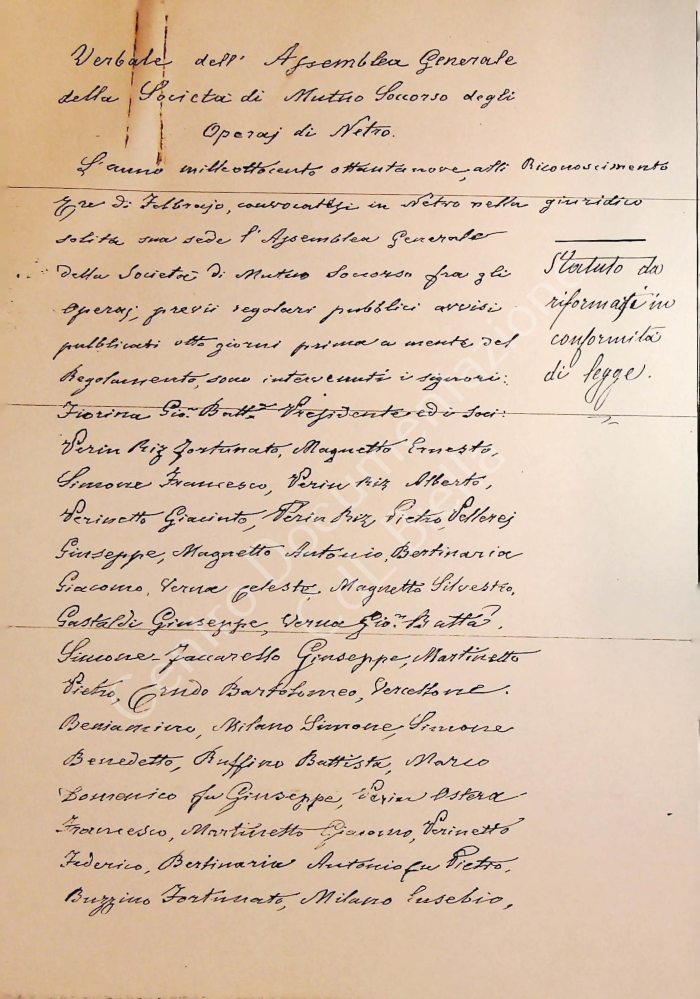 Verbale dell' Assemblea Generale
della Società di Mutuo Soccorso degli
Operaj di Netro.
L'anno milleottocento ottantanove, alli
tre di Febbrajo, convocatasi in Netro nella
solita sua sede l'Assemblea Generale
della Società di Mutuo Soccorso fra gli
Operaj, previi regolari pubblici avvisi
pubblicati otto giorni prima a mente del
Regolamento, sono intervenuti i signori:
Fiorina Gio. Batta Presidente ed i soci:
Perin Riz Fortunato, Magnetto Ernesto,
Simone Francesco, Perin Riz Alberto,
Perinetto Giacinto, Perin Riz Pietro, Pellerej
Giuseppe, Magnetto Antonio, Bertinaria
Giacomo, Verna Celeste, Magnetto Silvestro,
Gastaldi Giuseppe, Verna Gio. Batta,
Simone Giuseppe, Martinetto
Pietro, Bartolomeo, Vercellone
Beniamino, Milano Simone, Simone
Benedetto, Ruffino Battista, Marco
Domenico fu Giuseppe, Perin Ostera
Francesco, Martinetto Giacomo, Perinetto
Federico, Bertinaria Antonio fu Pietro,
Buzzino Fortunato, Milano Eusebio,
Riconoscimento
giuridico
Statuto da
riformarsi in
conformità
di legge.
Centro Documentazione
di Biella